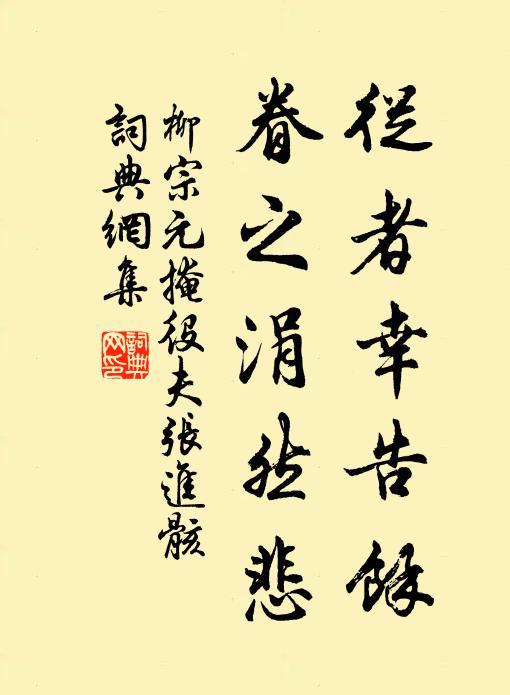 從者幸告餘
眷之涓然悲
柳宗元掩役夫張進骸
詞典網集
詞典網印